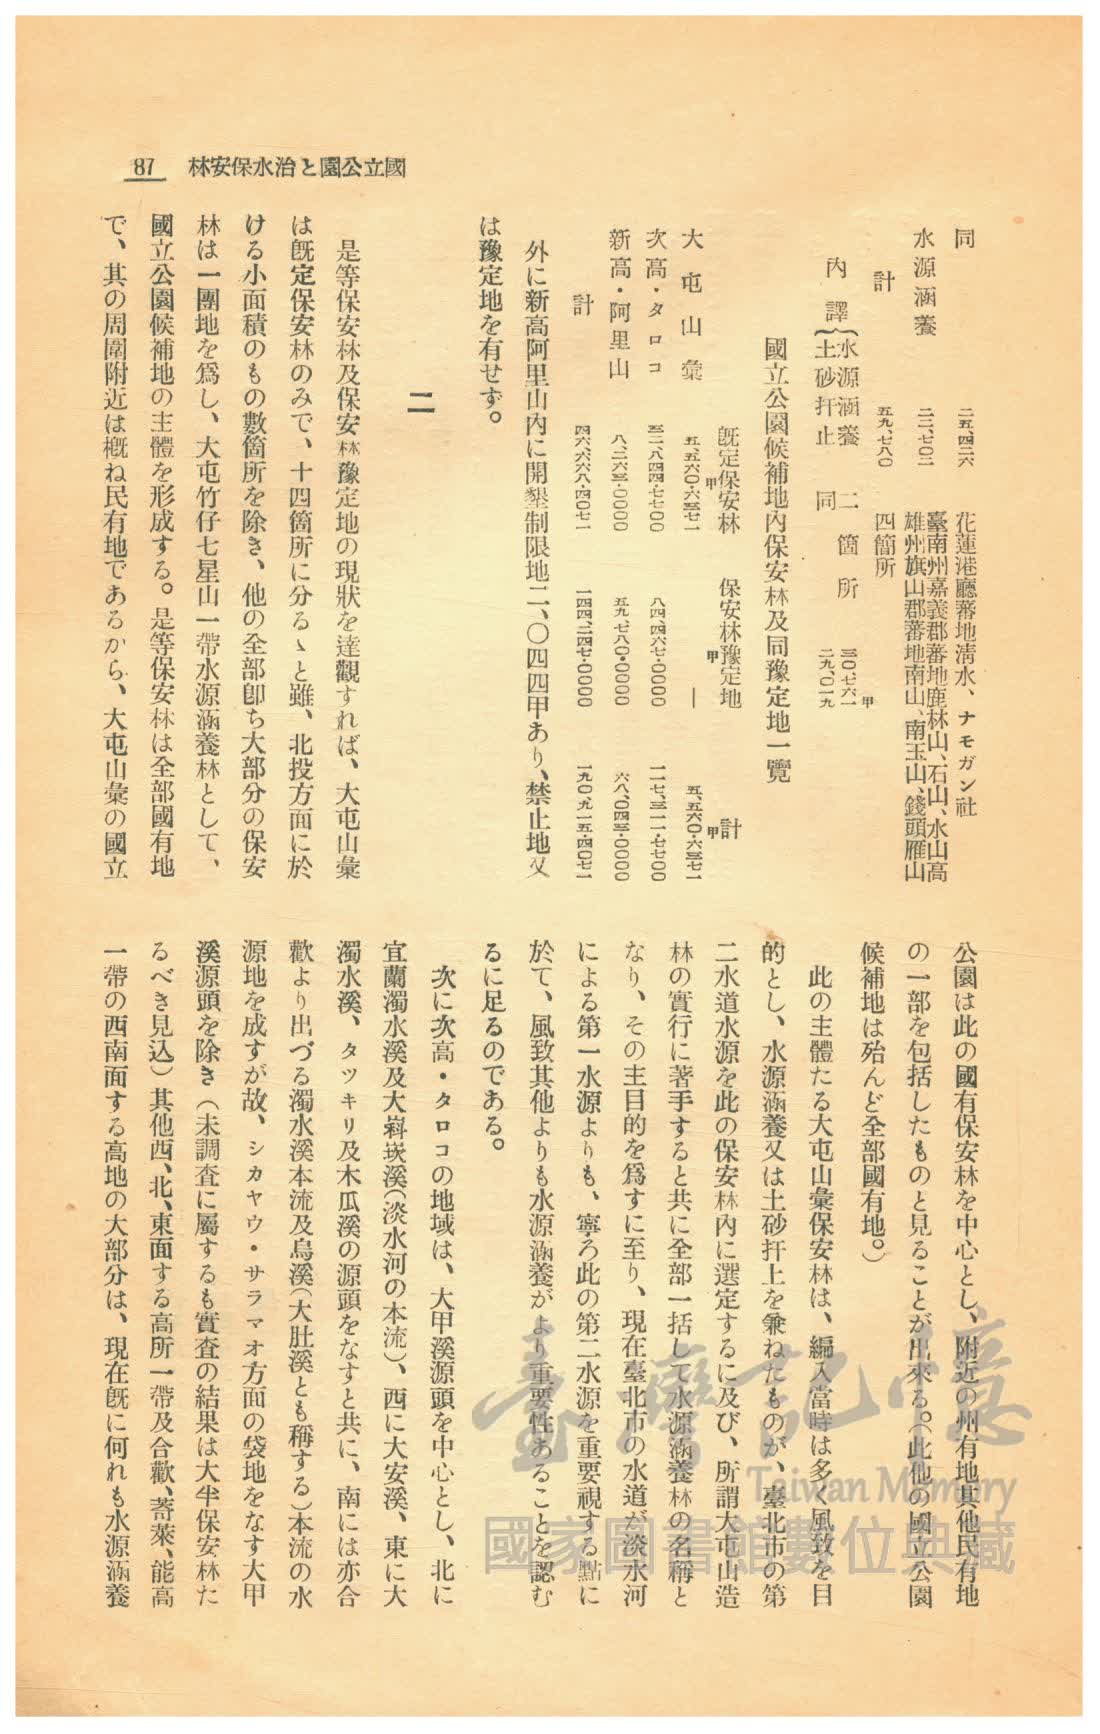 87　國立公園と治水保安林
同　二五、四二六　花蓮港廳蕃地清水、ナモガン社
水源涵養　二二、七〇二　臺南州嘉義郡蕃地鹿林山、石山、水山高
雄州旗山郡蕃地南山、南玉山、錢頭雁山
計　五九、七八〇　四箇所
內譯｛水源涵養　二箇所　三〇、七六一甲
土砂扞止　同　二九、〇一九
國立公園候補地內保安林及同豫定地一覽
既定保安林　保安林豫定地　計
甲　甲　甲
大屯山彙　五、五六〇・六三七一　—　五、五六〇・六三七一
次高・タロコ　三二、八四四・七七〇〇　八四、四六七・〇〇〇〇　一一七、三一一・七七〇〇
新高・阿里山　八、二六三・〇〇〇〇　五九、七八〇・〇〇〇〇　六八、〇四三・〇〇〇〇
計　四六、六六八・四〇七一　一四四、二四七・〇〇〇〇　一九〇、九一五・四〇七一
外に新高阿里山內に開墾制限地二、〇四四甲あり、禁止地又
は豫定地を有せず。
二
是等保安林及保安林豫定地の現狀を達觀すれば、大屯山彙
は既定保安林のみで、十四箇所に分るゝと雖、北投方面に於
ける小面積のもの數箇所を除き、他の全部卽ち大部分の保安
林は一團地を爲し、大屯竹仔七星山一帶水源涵養林として、
國立公園候補地の主體を形成する。是等保安林は全部國有地
で、其の周圍附近は槪ね民有地であるから、大屯山彙の國立
公園は此の國有保安林を中心とし、附近の州有地其他民有地
の一部を包括したものと見ることが出來る。（此他の國立公園
候補地は殆んど全部國有地。）
此の主體たる大屯山彙保安林は、編入當時は多く風致を目
的とし、水源涵養又は土砂扞止を兼ねたものが、臺北市の第
二水道水源を此の保安林內に選定するに及び、所謂大屯山造
林の實行に著手すると共に全部一括して水源涵養林の名稱と
なり、その主目的を爲すに至り、現在臺北市の水道が淡水河
による第一水源よりも、寧ろ此の第二水源を重要視する點に
於て、風致其他よりも水源涵養がより重要性あることを認む
るに足るのである。
次に次高・タロコの地域は、大甲溪源頭を中心とし、北に
宜蘭濁水溪及大嵙崁溪（淡水河の本流）、西に大安溪、東に大
濁水溪、タツキリ及木瓜溪の源頭をなすと共に、南には亦合
歡より出づる濁水溪本流及烏溪（大肚溪とも稱する）本流の水
源地を成すが故、シカヤウ・サラマオ方面の袋地をなす大甲
溪源頭を除き（未調査に屬するも實査の結果は大半保安林た
るべき見込）其他西、北、東面する高所一帶及合歡、寄萊、能高
一帶の西南面する高地の大部分は、現在既に何れも水源涵養
臺灣記憶
Taiwan Memory
國家圖書館數位典藏